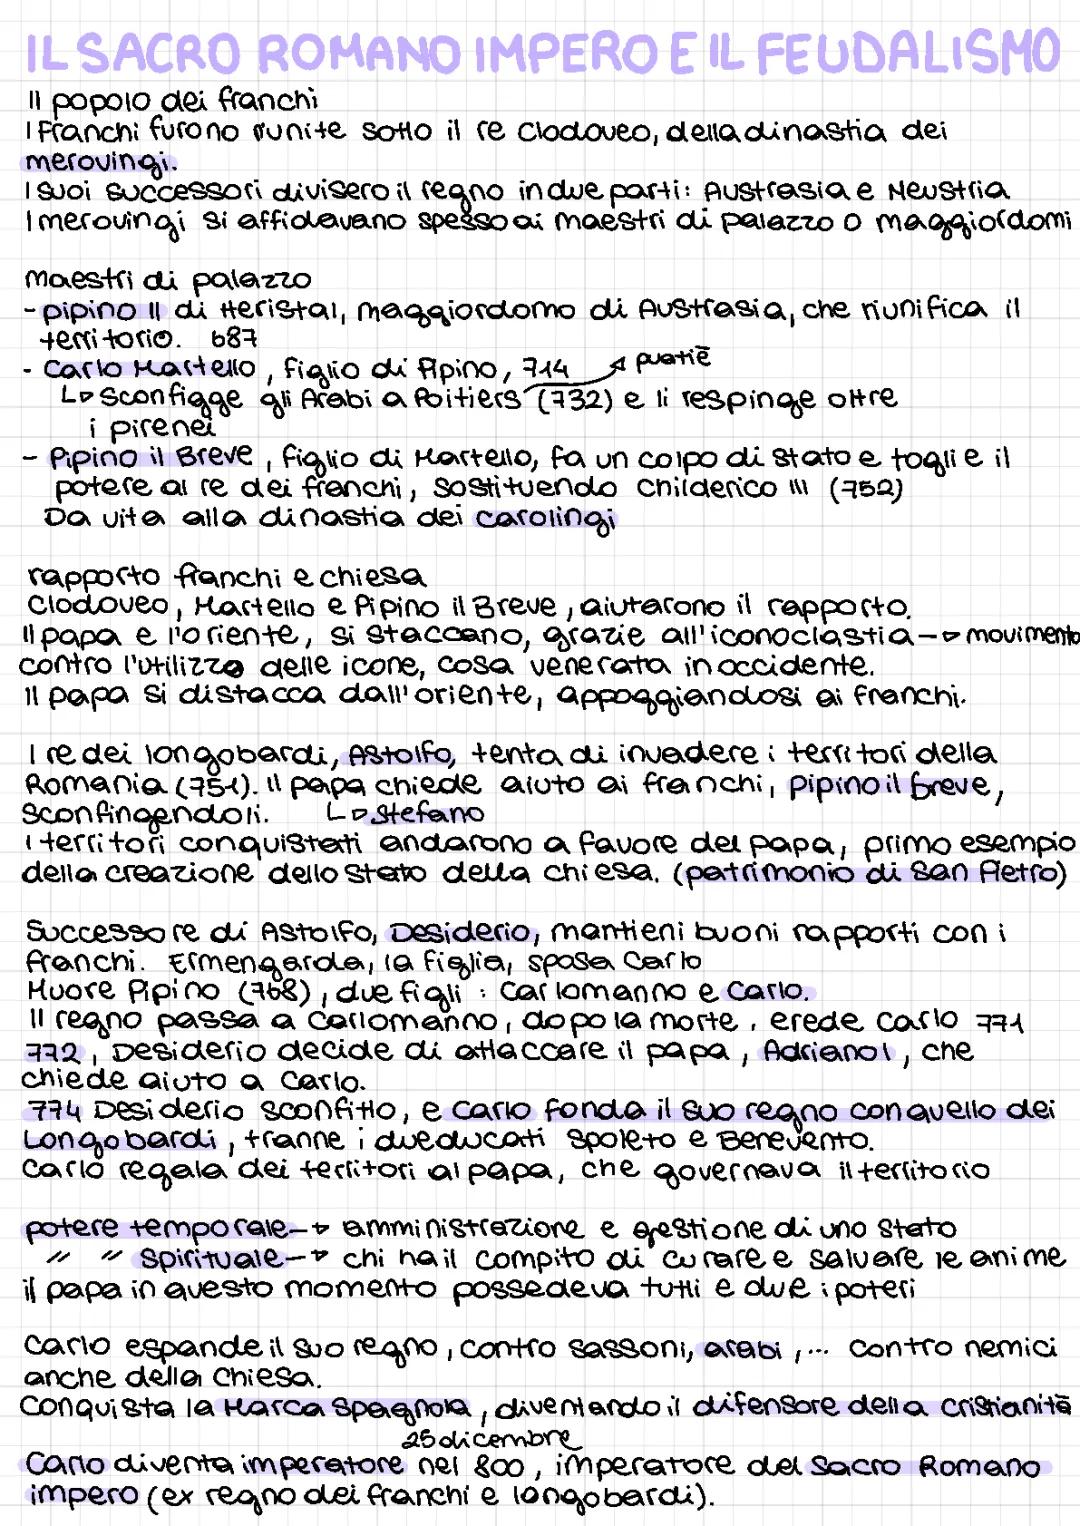 IL SACRO ROMANO IMPERO E IL FEUDALISMO
Il popolo dei franchi
I Franchi furono runite sotto il re Clodoveo, della dinastia dei
merovingi.
I suoi successori divisero il regno in due parti: Austrasia e Neustria
I merovingi si affidavano spesso ai maestri di palazzo o maggiordomi
maestri di palazzo
- pipino II di Heristal, maggiordomo di Austrasia, che riunifica il
territorio. 687
- Carlo Martello, figlio di Pipino, 714 puatiè
↳ Sconfigge gli Arabi a Poitiers (732) e li respinge oltre
i pirenei
- Pipino il Breve, figlio di Martello, fa un colpo di stato e toglie il
potere al re dei franchi, sostituendo Childerico III (752)
Da vita alla dinastia dei carolingi
rapporto franchi e chiesa
Clodoveo, Martello e Pipino il Breve, aiutarono il rapporto.
Il papa e l'oriente, si staccano, grazie all'iconoclastia → movimento
contro l'utilizzo delle icone, cosa venerata in occidente.
Il papa si distacca dall'oriente, appoggiandosi ai franchi.
I re dei longobardi, Astolfo, tenta di invadere i territori della
Romania (751). Il papa chiede aiuto ai franchi, pipino il breve,
sconfingendoli. ↳ Stefano
I territori conquistati andarono a favore del papa, primo esempio
della creazione dello stato della chiesa. (patrimonio di San Pietro)
Successore di Astolfo, Desiderio, mantieni buoni rapporti con i
franchi. Ermengarda, la figlia, sposa Carlo
Muore Pipino (768), due figli: Carlomanno e Carlo.
Il regno passa a Carlomanno, dopo la morte, erede Carlo 771
772, Desiderio decide di attaccare il papa, Adriano I, che
chiede aiuto a Carlo.
774 Desiderio sconfitto, e Carlo fonda il suo regno con quello dei
Longobardi, tranne i due ducati Spoleto e Benevento.
Carlo regala dei territori al papa, che governava il territorio
potere temporale → amministrazione e gestione di uno stato
" " Spirituale → chi ha il compito di curare e salvare le anime
il papa in questo momento possedeva tutti e due i poteri
Carlo espande il suo regno, contro sassoni, arabi, ... contro nemici
anche della Chiesa.
Conquista la Marca Spagnola, diventando il difensore della cristianità
25 dicembre
Carlo diventa imperatore nel 800, imperatore del Sacro Romano
impero (ex regno dei franchi e longobardi).